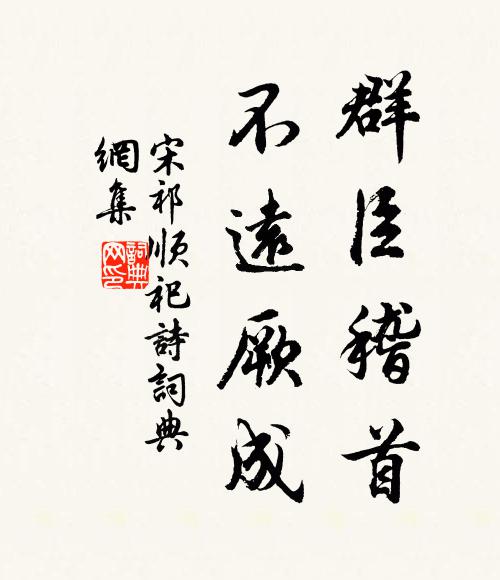 群臣稽首
不遠厥成
宋祁順祀詩詞典
網集
詞典
网印